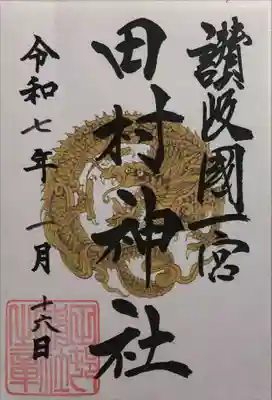 讃岐國一宮
田村神社
令和七年一月十六日